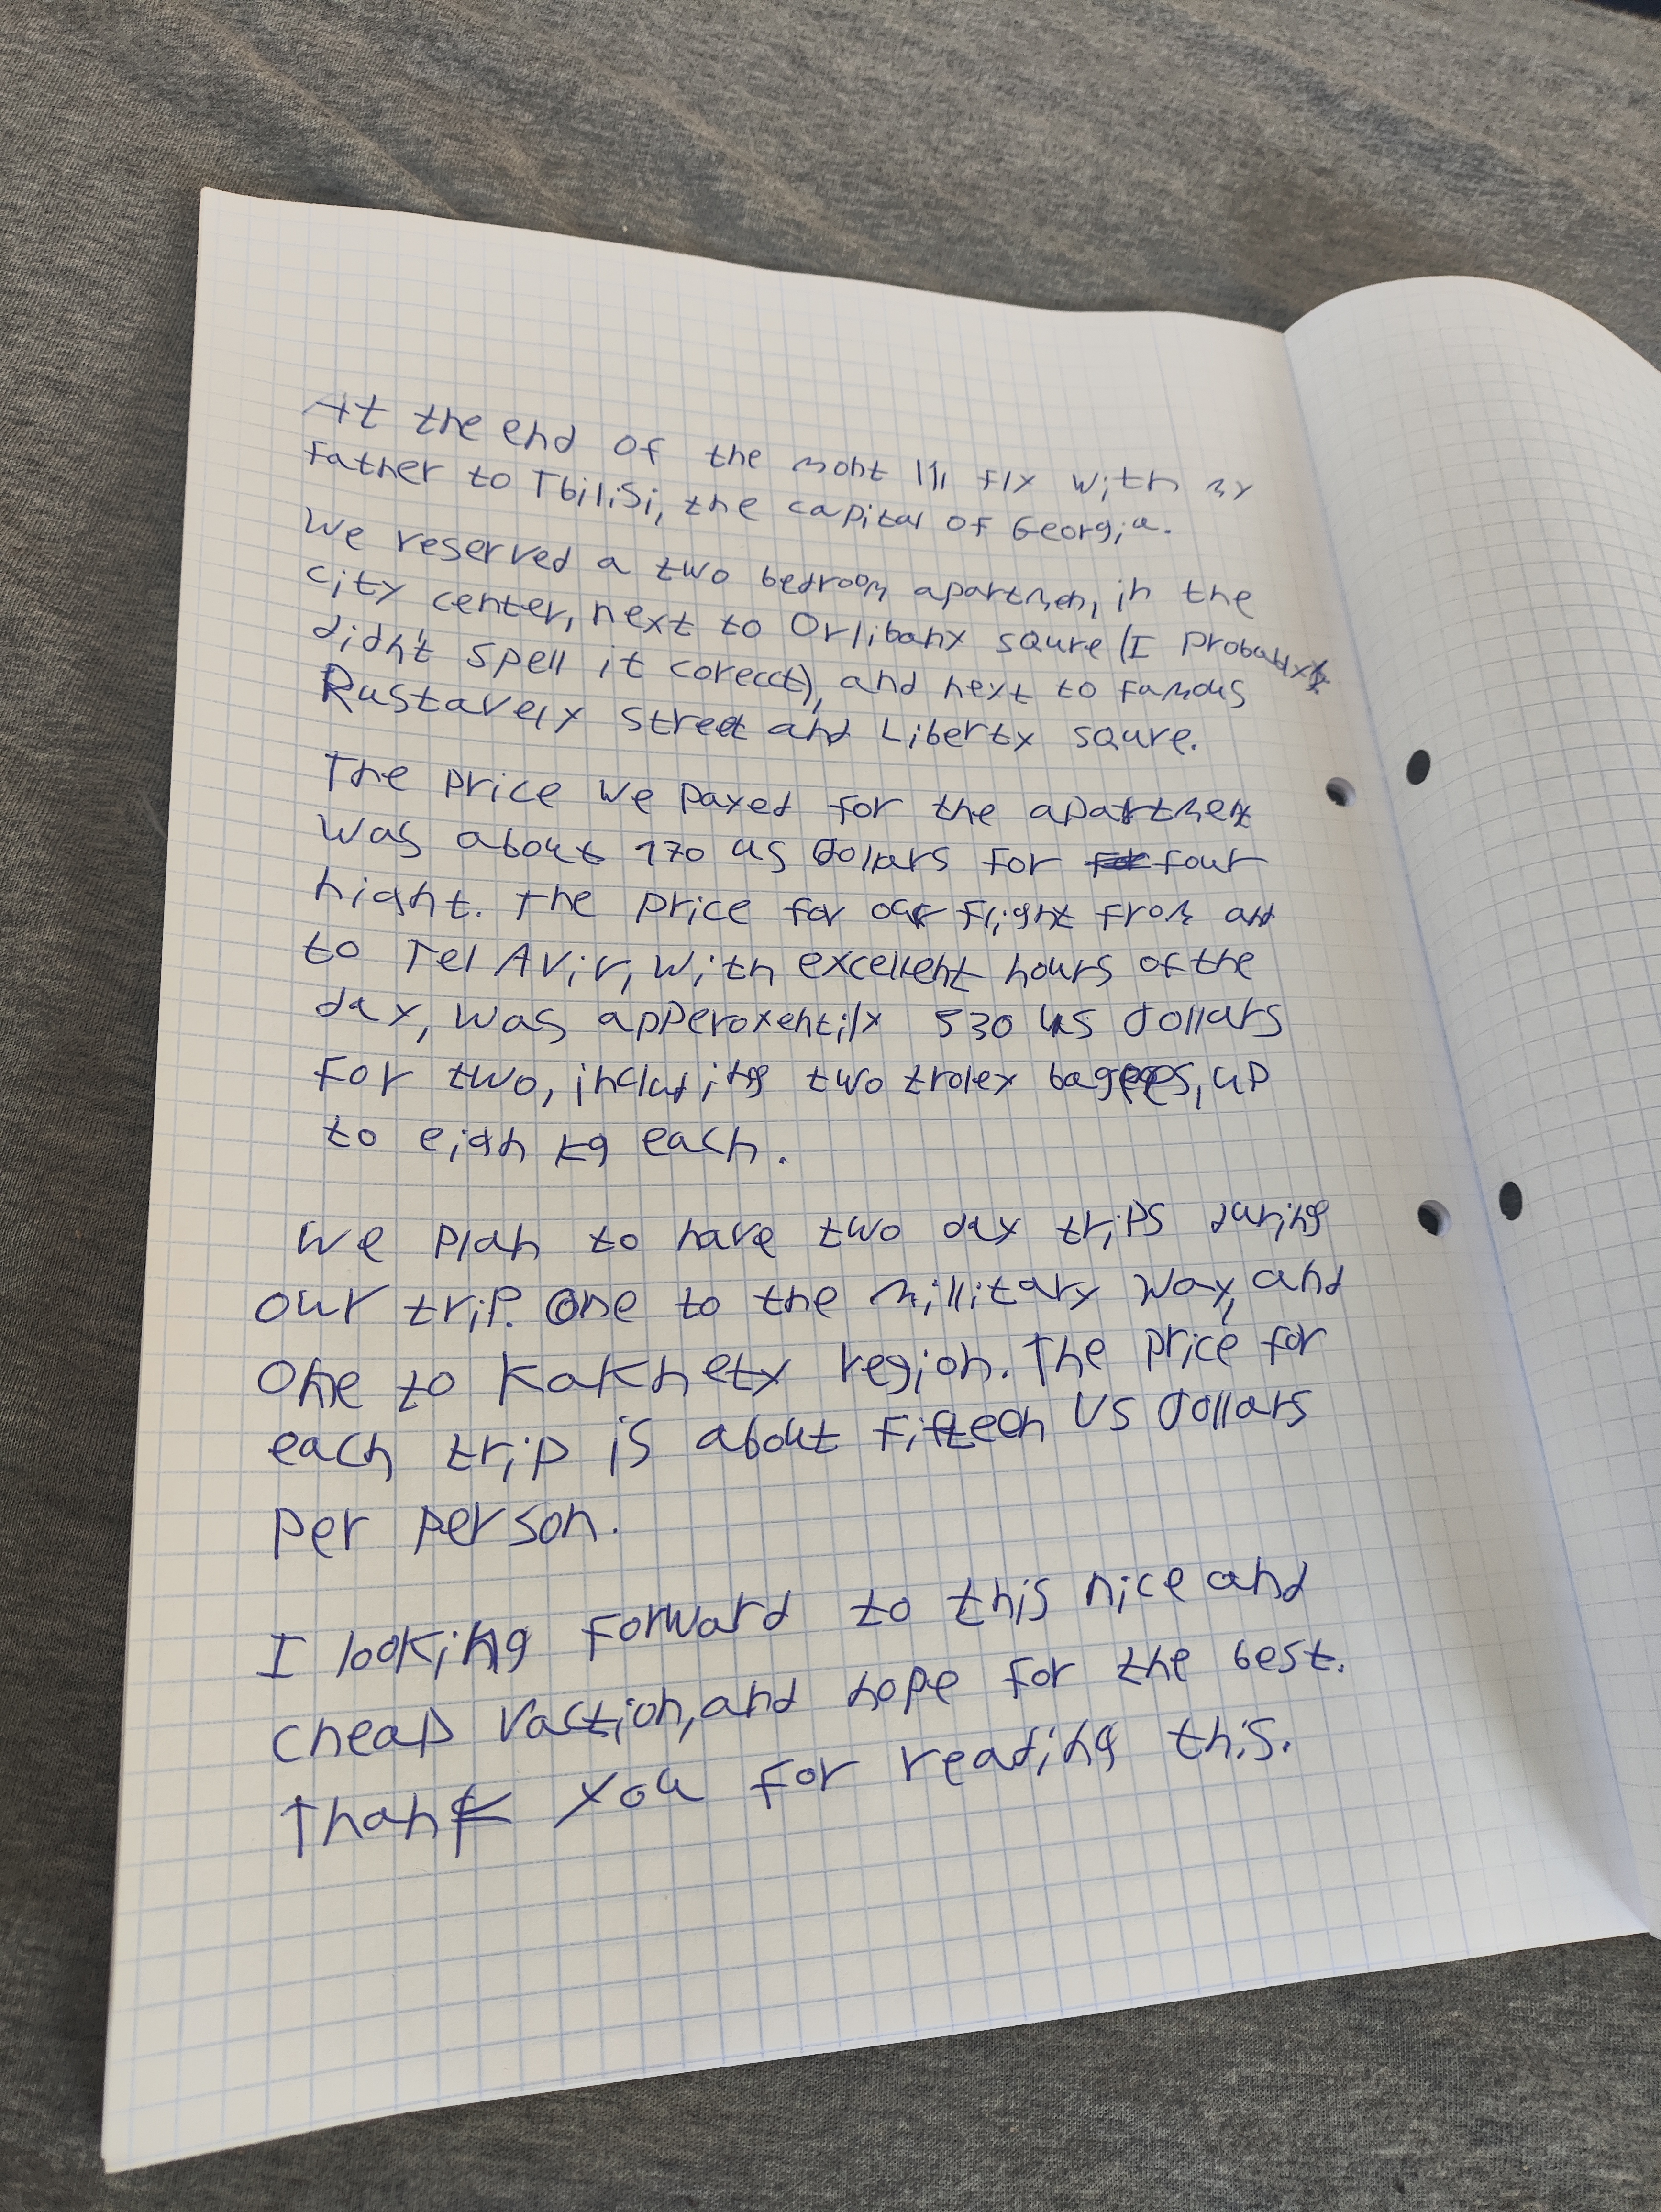 At the end of the moht I'll fly with my
Father to Tbilisi, the capital of Georgia.
We reserved a two bedroom apartmen, in the
city center, next to Orlibany squre (I probably
didn't spell it corecct), and next to famous
Rustavely street and Liberty squre.
The price we payed for the apartment
was about 170 us dollars for four
night. The price for our flight from and
to Tel Aviv, with excellent hours of the
day, was apperoxentily 530 us dollars
For two, including two troley bagges, up
to eigh kg each.
We plan to have two day trips during
our trip. One to the millitary way, and
One to Kakhety region. The price for
each trip is about Fifteen US dollars
per person.
I looking forward to this nice and
cheap vaction, and hope for the best.
Thank you for reading this.